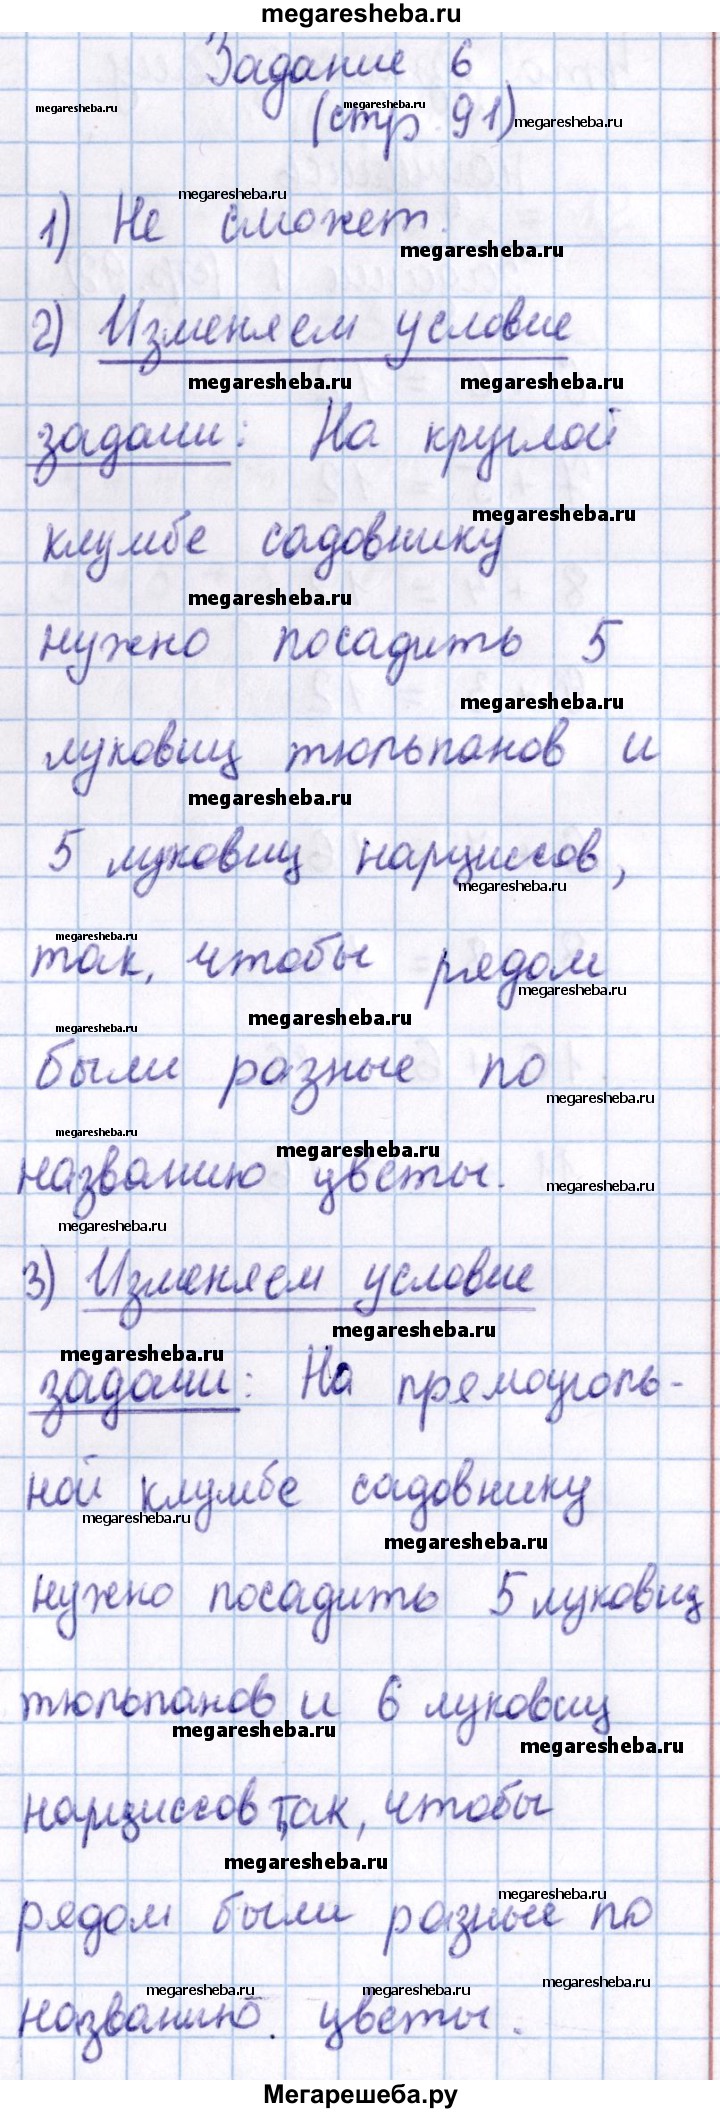 megaresheba.ru
Задание 6
megaresheba.ru megaresheba.ru
(стр. 91) megaresheba.ru
megaresheba.ru
1) Не сможет.
megaresheba.ru
2) Изменяем условие
megaresheba.ru megaresheba.ru
задачи: На круглой
megaresheba.ru
клумбе садовнику
megaresheba.ru
нужно посадить 5
megaresheba.ru
луковиц тюльпанов и
megaresheba.ru
5 луковиц нарциссов,
megaresheba.ru
megaresheba.ru
так, чтобы рядом
megaresheba.ru
megaresheba.ru
megaresheba.ru
были разные по
megaresheba.ru
megaresheba.ru
megaresheba.ru
названию цветы.
megaresheba.ru
megaresheba.ru
3) Изменяем условие
megaresheba.ru
megaresheba.ru
задачи: На прямоуголь-
ной клумбе садовнику
megaresheba.ru
megaresheba.ru
нужно посадить 5 луковиц
тюльпанов и 6 луковиц
megaresheba.ru
megaresheba.ru
нарциссов так, чтобы
megaresheba.ru
megaresheba.ru
рядом были разные по
megaresheba.ru megaresheba.ru megaresheba.ru
названию цветы.
Мегарешеба.ру